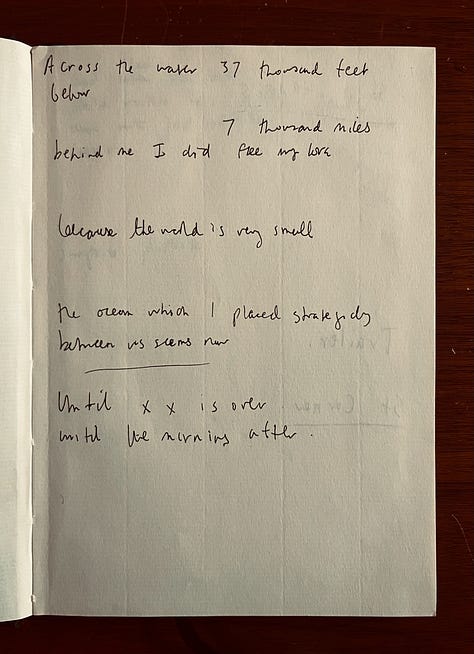 Across the water 37 thousand feet
below
7 thousand miles
behind me I did flee my love
because the world is very small
the ocean which I placed strategically
between us seems now
Until x x is over
until the morning after.